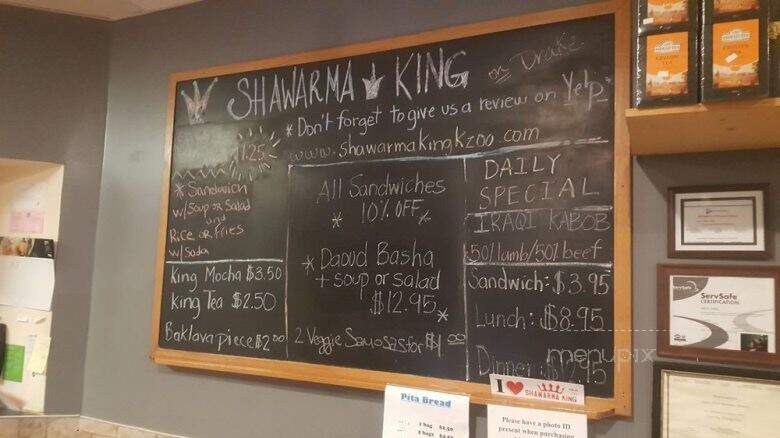 SHAWARMA KING on Drake
* Don't forget to give us a review on Yelp*
www.shawarmakingkzoo.com
* Sandwich
w/Soup or Salad
and
Rice or Fries
w/Soda
King Mocha $3.50
King Tea $2.50
Baklava piece $2.00
All Sandwiches
* 10% OFF *
* Daoud Basha
+ soup or salad
$12.95 *
2 Veggie Samosas for
DAILY
SPECIAL
IRAQI KABOB
50% lamb/50% beef
Sandwich: $3.95
Lunch: $8.95
Dinner
menupix
I ♥ SHAWARMA KING
Pita Bread
1 bag
2 bags
Please have a photo ID
present when purchasing
ServSafe
ServSafe
CERTIFICATION
CEYLON
TEA